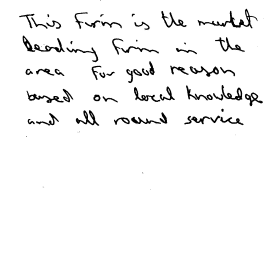 This Firm is the market
leading Firm in the
area For good reason
based on local knowledge
and all round service